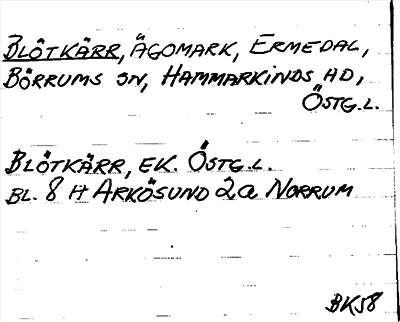 BLÖTKÄRR, ÄGOMARK, ERMEDAL,
BÖRRUMS SN, HAMMARKINDS HD,
ÖSTG.L.
BLÖTKÄRR, EK. ÖSTG.L.
BL. 8 H ARKÖSUND 2a NORRUM
BK58